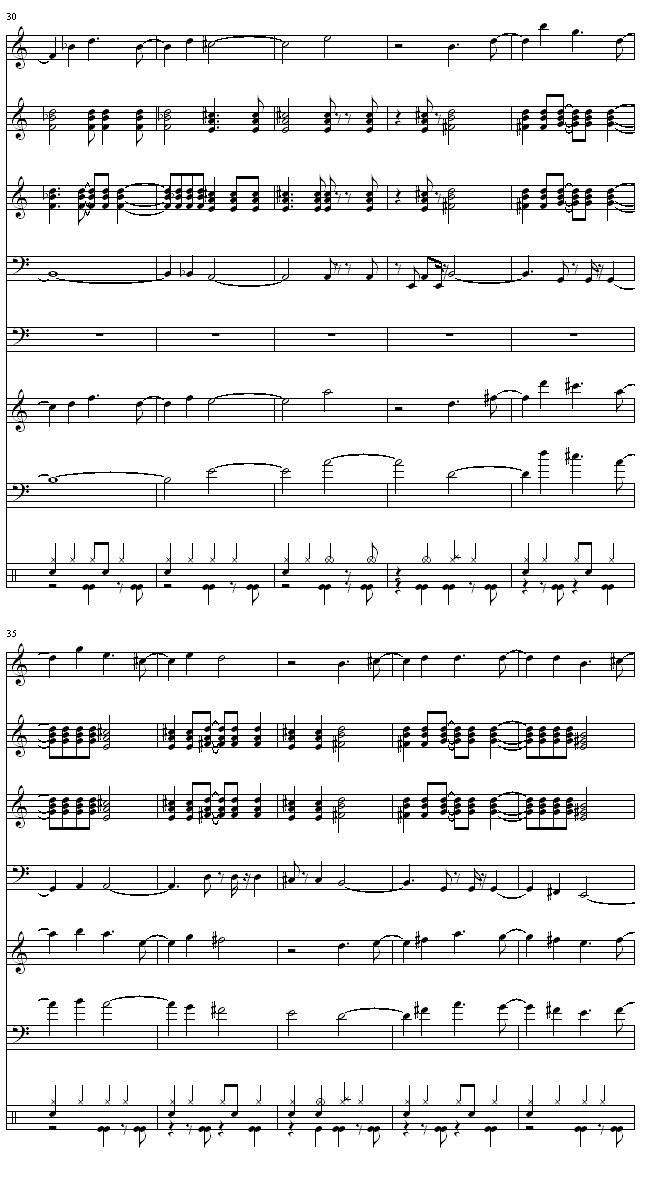 30
35